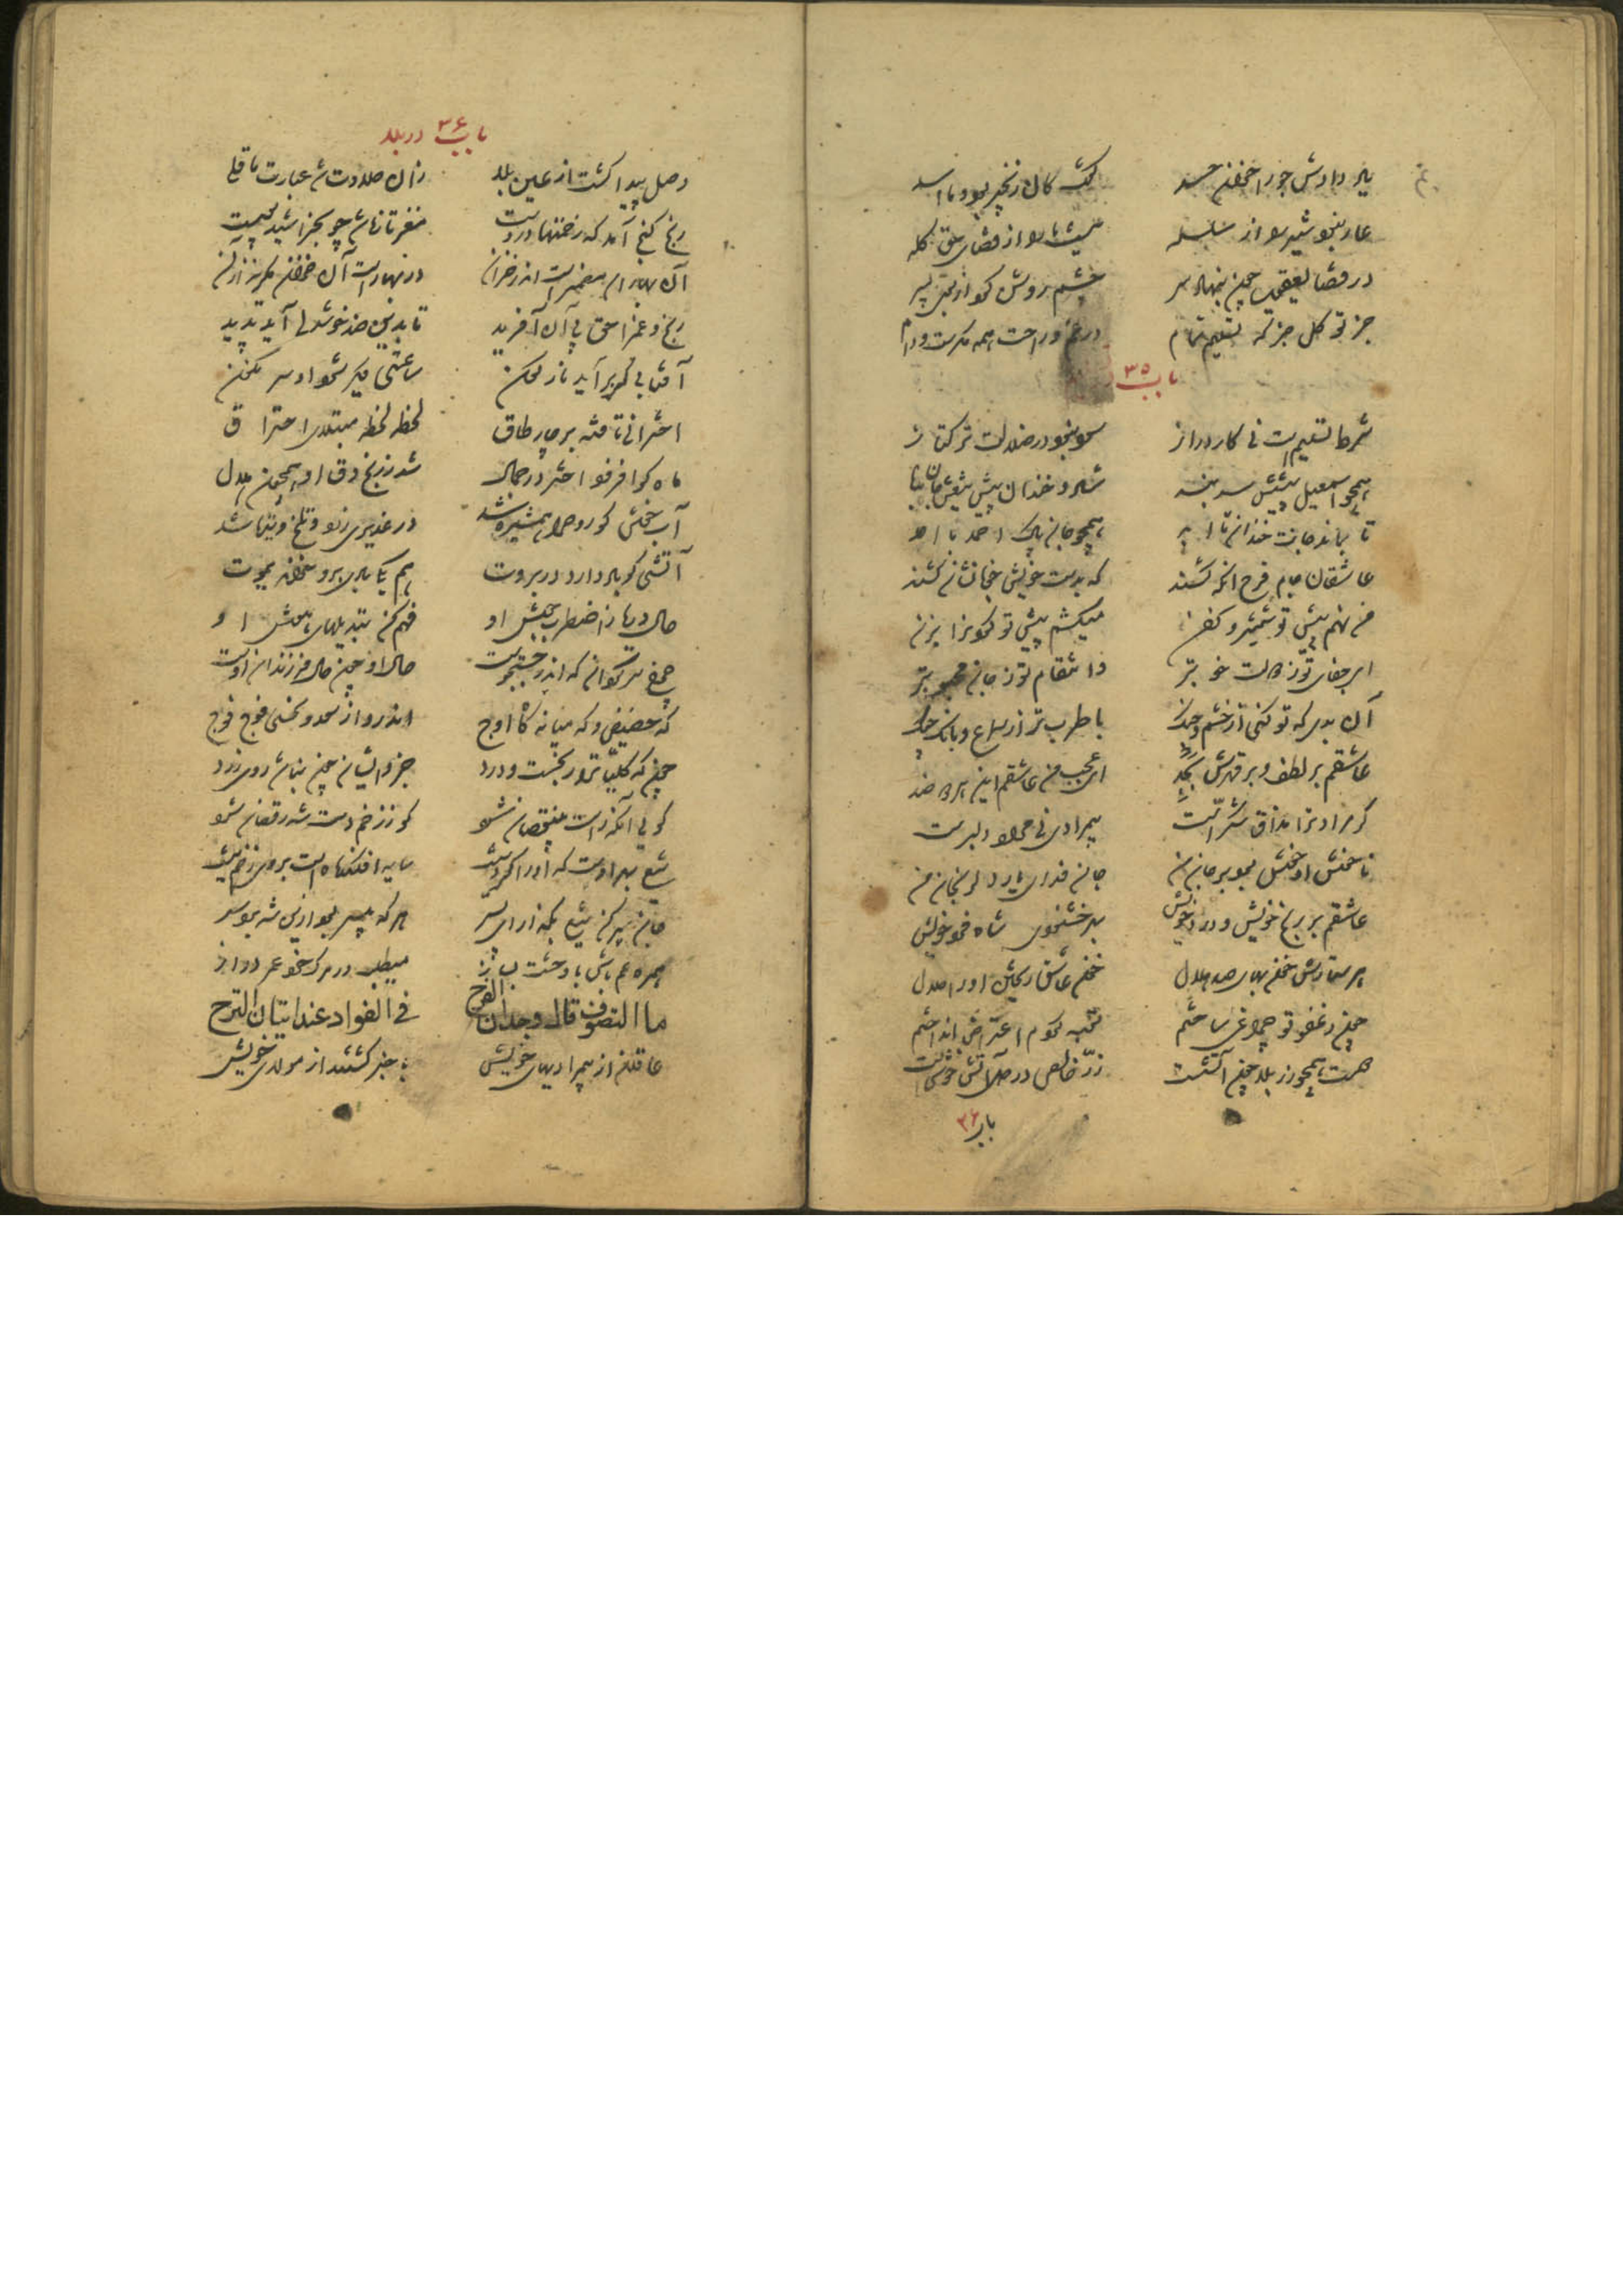 یاد دادش جور اخوان و حسد گفت کان زنجیر بود و ما اسد
عار نبود شیر را از سلسله نیست ما را از قضای حق گله
در قضا یعقوب چون بنهاد سر چشم روشن کرد از بوی پسر
جز توکل جز که تسلیم تمام در غم و راحت همه مکرست و دام
باب ۳۵
شرط تسلیمست نی کار دراز سود نبود در ضلالت ترکتاز
همچو اسمعیل پیشش سر بنه شاد و خندان پیش تیغش جان بده
تا بماند جانت خندان تا ابد همچو جان پاک احمد با احد
عاشقان جام فرح آنگه کشند که بدست خویش خوبانشان کشند
من نهم پیش تو شمشیر و کفن میکشم پیش تو گردن را بزن
ای جفای تو ز دولت خوبتر و انتقام تو ز جان محبوبتر
آن بدی که تو کنی از خشم و جنگ با طرب تر از سماع و بانگ چنگ
عاشقم بر لطف و بر قهرش بجد ای عجب من عاشقم این هر دو ضد
گر مرادت را مذاق شکرست بیمرادی نی مراد دلبرست
ناخوش او خوش بود بر جان من جان فدای یار دل رنجان من
عاشقم بر رنج خویش و درد خویش بهر خشنودی شاه فرد خویش
هر ستارش خونبهای صد هلال خون عاشق ریختن او را حلال
چون ز عفو تو چراغی ساختم توبه کردم اعتراض انداختم
هست همچو زر بلا چون آتشست زر خالص در دل آتش خوشست
باب ۳۶
باب ۳۶ در بلا
وصل پیدا گشت از عین بلا زان حلاوت شد عبارت ما قلی
رنج گنج آمد که رحمتها دروست مغز تازه شد چو بخراشید پوست
آن بهاران مضمرست اندر خزان در بهارست آن خزان مگریز از آن
رنج و غم را حق پی آن آفرید تا بدین ضد خوشدلی آید پدید
آفتابی کو برآید نارگون ساعتی دیگر شود او سرنگون
اخترانی تافته بر چار طاق لحظه لحظه مبتلای احتراق
ماه کو افزود اختر در جمال شد ز رنج دق او همچون هلال
آب خوش کو روح را همشیره شد در غدیری زرد و تلخ و تیره شد
آتشی کو باد دارد در بروت هم یکی بادی برو خواند یموت
حال دریا ز اضطراب و جوش او فهم کن تبدیلهای هوش او
چرخ سرگردان که اندر جستجوست حال او چون حال فرزندان اوست
گه حضیض و گه میانه گاه اوج اندرو از سعد و نحسی فوج فوج
چونکه کلیات را رنجست و درد جزو ایشان چون نباشد روی زرد
گوی آنگه راست بی نقصان شود کو ز زخم دست شه رقصان شود
تیغ بهر اوست که او را گردنیست سایه افکنده است بر وی زخم نیست
جان سپر کن تیغ بگذار ای پسر هر که بیسر بود ازین شه برد سر
همره غم باش با وحشت بساز میطلب در مرگ خود عمر دراز
ما التصوف قال وجدان الفرح فی الفواد عند اتیان الترح
عاقلان از بیمرادیهای خویش باخبر گشتند از مولای خویش